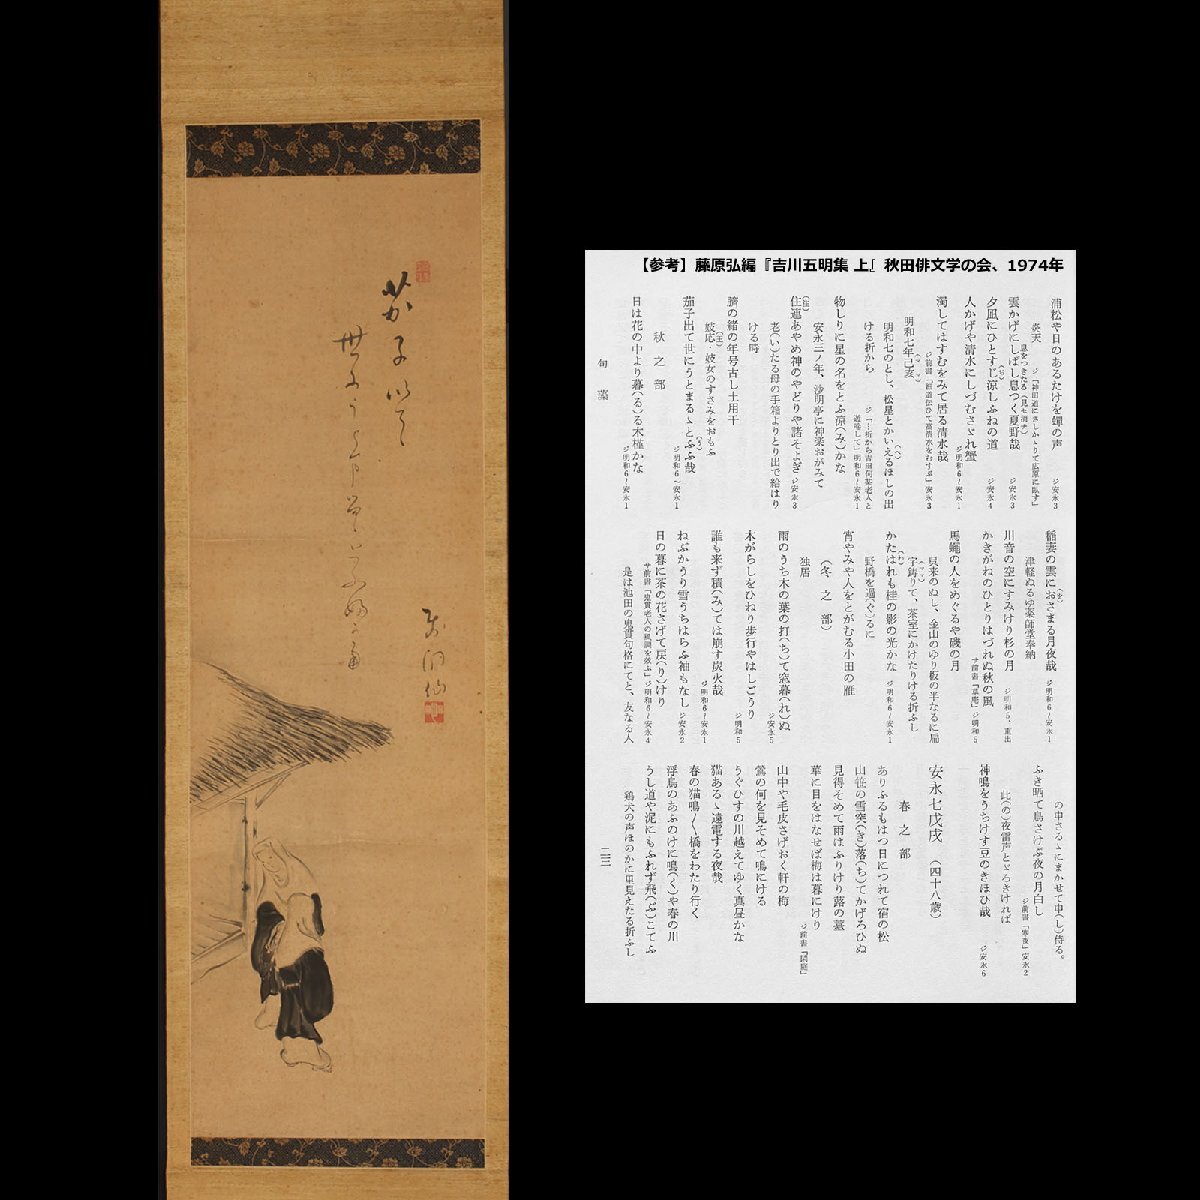 茄子出て
世にうとまるゝとふ哉
【参考】藤原弘編『吉川五明集 上』秋田俳文学の会、1974年
浦松や日のあるたけを蟬の声 ジ安永3
炎天
雲かげにしばし息つく夏野哉 ジ安永3
夕凪にひとすじ涼しふねの道 ジ安永4
人かげや清水にしづむさゞれ蟹 ジ明和6〜安永1
濁してはすむをみて居る清水哉
明和七年己亥
明和七のとし、松星とかいえるほしの出
ける折から
物しりに星の名をとふ涼(み)かな
安永三ノ年、沙明亭に神楽おがみて
住連あやめ神のやどりや諸そよぎ ジ安永3
老(い)たる母の手箱よりとり出で給はり
ける時
臍の緒の年号古し土用干
妓応・妓女のすさみをおもふ
茄子出て世にうとまるゝとふふ哉 ジ明和6〜安永1
秋之部
日は花の中より暮(る)る木槿かな ジ明和6〜安永1
句藻
稲妻の雲におさまる月夜哉 ジ明和6〜安永1
津軽ぬるゆ薬師堂奉納
川音の空にすみけり杉の月
かきがねのひとりはづれぬ秋の風 ジ明和5
馬蠅の人をめぐるや磯の月
貝来のぬし、金山のゆり板の半なるに扇
宇鋳りて、茶室にかけたりける折ふし
かたはれも桂の影の光かな ジ明和6〜安永1
野橋を過(ぐ)るに
宵やみや人をとがむる小田の雁
(冬之部)
独居
雨のうち木の葉の打(ち)て窓暮(れ)ぬ ジ安永5
木がらしをひねり歩行やはしごうり ジ明和5
誰も来ず積(み)ては崩す炭火哉 ジ明和6〜安永1
ねぶかうり雪うちはらふ袖もなし ジ安永2
日の暮に茶の花さげて戻(り)けり ジ明和6〜安永4
是は池田の鬼貫句格にてと、友なる人
二三
の申さるゝにまかせて申(し)侍る。
ふき晒て鳥さけぶ夜の月白し ジ前書「寒夜」安永2
此(の)夜雷声とゞろきければ
神鳴をうちけす豆のきほひ哉 ジ安永6
安永七戊戌 (四十八歳)
春之部
ありふるもはつ日につれて宿の松
山笹の雪突(き)落(ち)てかげろひぬ
見得そめて雨はふりけり蕗の薹
華に目をはなせば梅は暮にけり
山中や毛皮さげおく軒の梅
鶯の何を見そめて鳴にける
うぐひすの川越えてゆく真昼かな
猫あるゝ遠電する夜哉
春の猫鳴〱橋をわたり行く
浮鳥のあふのけに鳴(く)や春の川
うし道や泥にもふれず飛(ぶ)こてふ
鶏犬の声ほのかに里見えたる折ふし